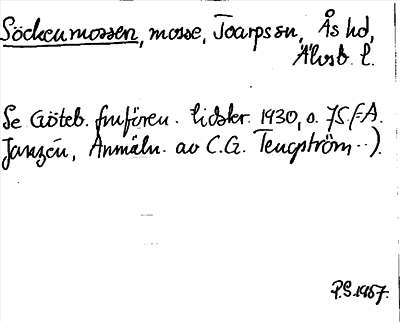 Söckenmossen, mosse, Toarps sn, Ås hd,
Älvsb. l.
Se Göteb. fornfören. tidskr. 1930, s. 75 (=A.
Janzén, Anmäln. av C.G. Tengström ..).
P.S. 1957.